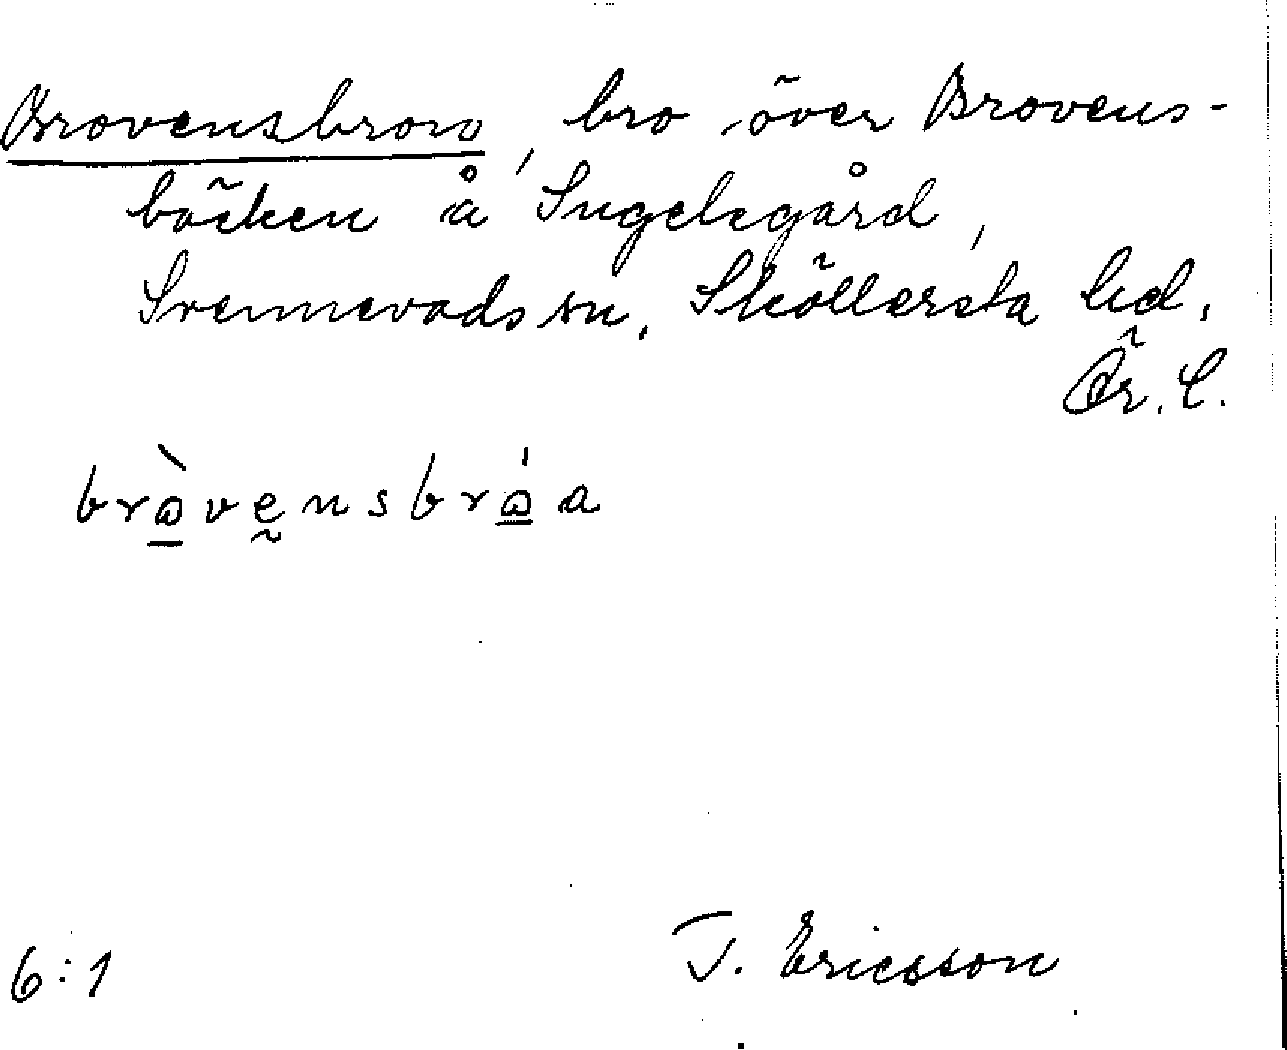 Brovensbron, bro över Brovens-
bäcken å Ingelsgård,
Svennevads sn, Sköllersta hd,
Ör. L.
bròvensbróa
6:1
T. Ericsson